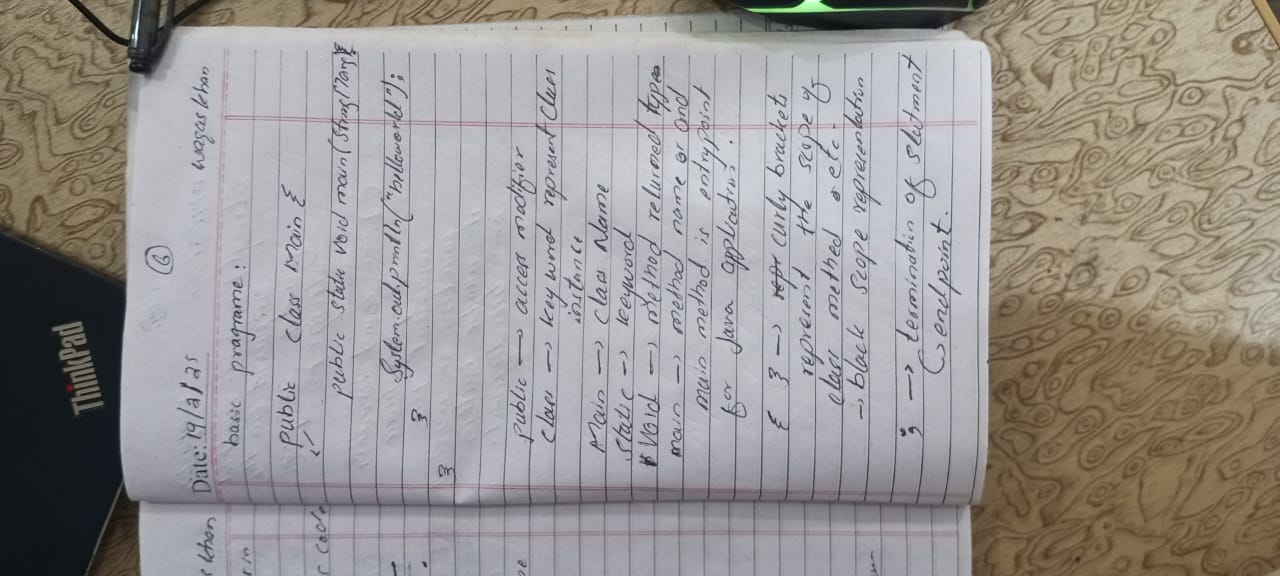 ③
Date: 19/2/25 waqas khan
basic programe:
public class Main {
public static void main(String[]args){
System.out.println("helloworld");
}
}
public → access modifier
class → key word represent class
instance
Main → class Name
static → keyword
Void → method returned types
main → method name or and
main method is entrypoint
for Java application.
{ } → curly brackets
represent the scope of
class method & etc.
→ black scope representation
; → termination of statment
(→ endpoint.
khan
r in
s code
ThinkPad